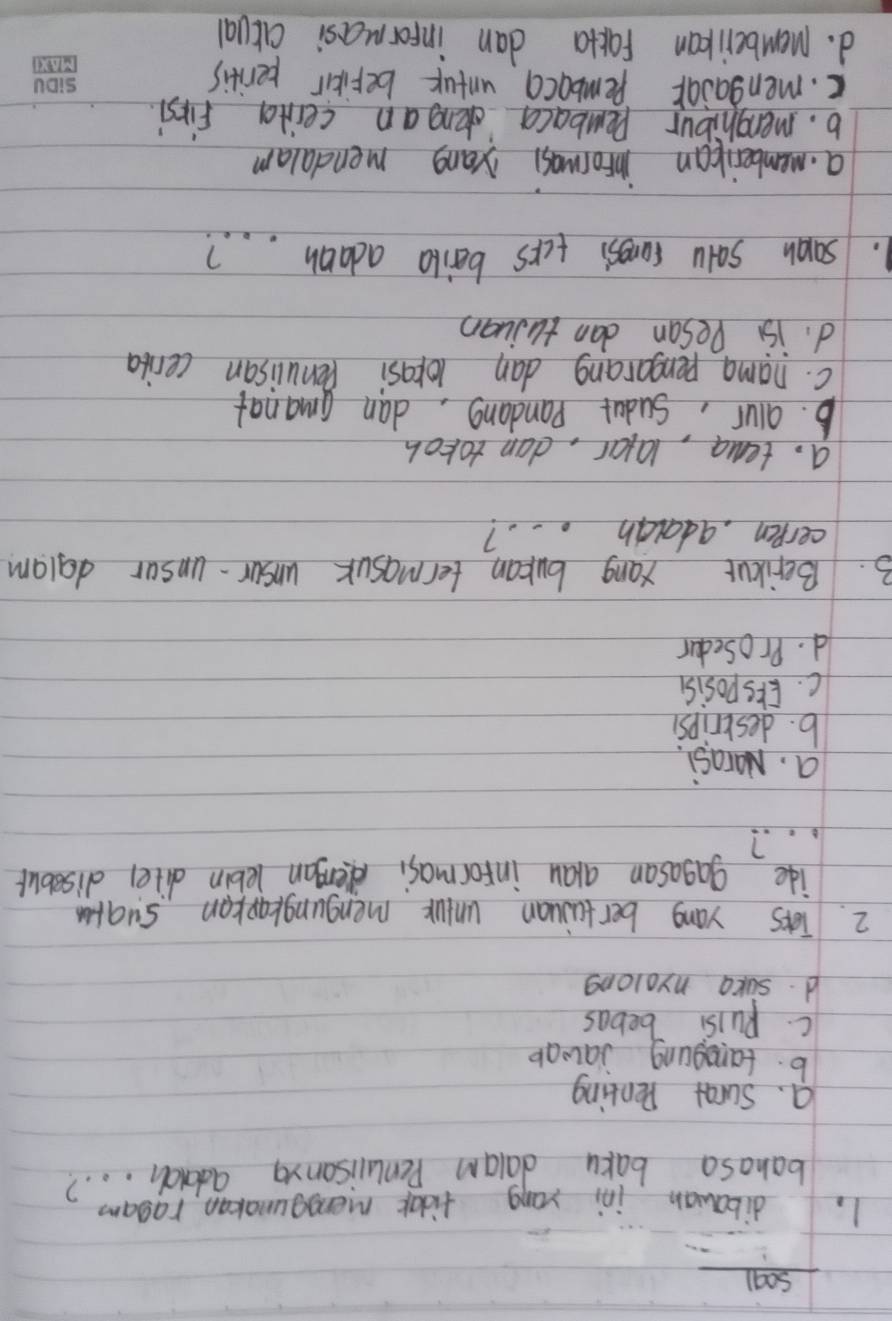 soal
1. dibawah ini yang tidak menggunakan ragam
bahasa baku dalam Penulisanya adalah ...?
a. surat Penting
b. tanggung jawab
c. puisi bebas
d. suka nyolong
2. Teks yang bertujuan untuk mengungkapkan suatu
ide gagasan atau informasi dengan lebih ditel disebut
...?
a. Narasi
b. deskripsi
c. Eksposisi
d. Prosedur
3. Berikut yang bukan termasuk unsur-unsur dalam
cerpen adalah ...?
a. tema, latar, dan tokoh
b. alur, sudut Pandang, dan amanat
c. nama pengarang dan lokasi Penulisan cerita
d. isi Pesan dan tujuan
salah satu fungsi teks berita adalah ...?
a. memberikan informasi yang mendalam
b. menghibur Pembaca dengan cerita fiksi.
c. mengajak Pembaca untuk befikir keritis
d. Memberikan Fakta dan informasi aktual
SIDU
MAXI